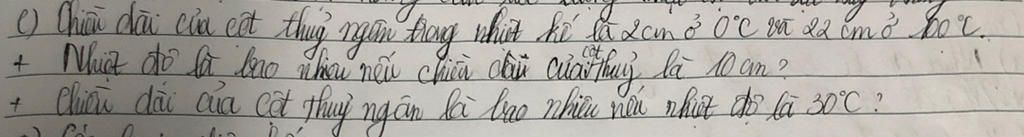 c) Chiều dài của cột thuỷ ngân trong nhiệt kế là 2cm ở 0°C và 22 cm ở °C.
+ Nhiệt độ là bao nhiêu nếu chiều dài của cột thuỷ là 10 cm?
+ Chiều dài của cột thuỷ ngân là bao nhiêu nếu nhiệt độ là 30°C?